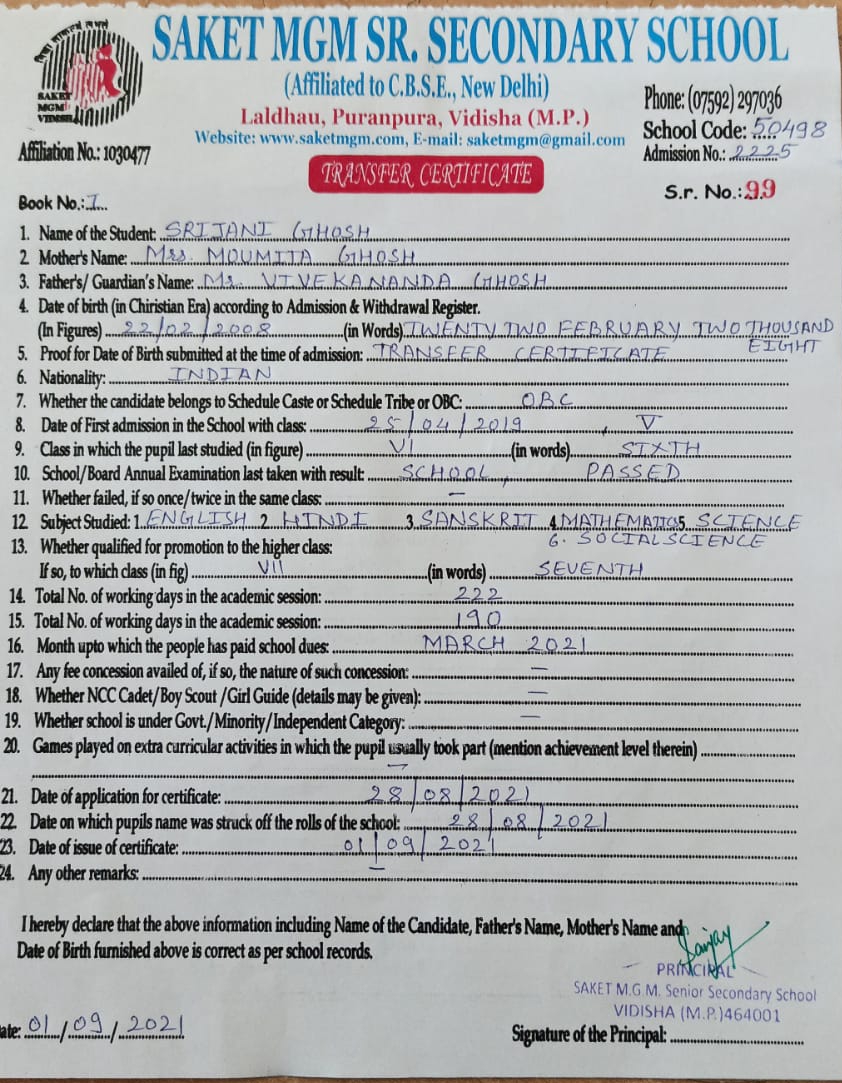 SAKET MGM SR. SECONDARY SCHOOL
(Affiliated to C.B.S.E., New Delhi)
Laldhau, Puranpura, Vidisha (M.P.)
Website: www.saketmgm.com, E-mail: saketmgm@gmail.com
SAKET
MGM
VIDISHA
Phone: (07592) 297036
School Code: 50498
Affiliation No.: 1030477
Admission No.: 2225
TRANSFER CERTIFICATE
Book No.: I
S.r. No.: 99
1. Name of the Student: SRIJANI GHOSH
2. Mother's Name: Mrs. MOUMITA GHOSH
3. Father's/ Guardian's Name: Mr. VIVEKANANDA GHOSH
4. Date of birth (in Chiristian Era) according to Admission & Withdrawal Register.
(In Figures) 22/02/2008 (in Words) TWENTY TWO FEBRUARY TWO THOUSAND EIGHT
5. Proof for Date of Birth submitted at the time of admission: TRANSFER CERTIFICATE
6. Nationality: INDIAN
7. Whether the candidate belongs to Schedule Caste or Schedule Tribe or OBC: OBC
8. Date of First admission in the School with class: 25/04/2019, V
9. Class in which the pupil last studied (in figure) VI (in words) SIXTH
10. School/Board Annual Examination last taken with result: SCHOOL, PASSED
11. Whether failed, if so once/twice in the same class: —
12 Subject Studied: 1. ENGLISH 2. HINDI 3. SANSKRIT 4. MATHEMATICS 5. SCIENCE
6. SOCIAL SCIENCE
13. Whether qualified for promotion to the higher class:
If so, to which class (in fig) VII (in words) SEVENTH
14. Total No. of working days in the academic session: 222
15. Total No. of working days in the academic session: 190
16. Month upto which the people has paid school dues: MARCH 2021
17. Any fee concession availed of, if so, the nature of such concession: —
18. Whether NCC Cadet/Boy Scout /Girl Guide (details may be given): —
19. Whether school is under Govt./Minority/Independent Category: —
20. Games played on extra curricular activities in which the pupil usually took part (mention achievement level therein)
—
21. Date of application for certificate: 28/08/2021
22. Date on which pupils name was struck off the rolls of the school: 28/08/2021
23. Date of issue of certificate: 01/09/2021
24. Any other remarks: —
I hereby declare that the above information including Name of the Candidate, Father's Name, Mother's Name and
Date of Birth furnished above is correct as per school records.
Sanjay
PRINCIPAL
SAKET M.G.M. Senior Secondary School
VIDISHA (M.P.)464001
ate: 01/09/2021
Signature of the Principal: